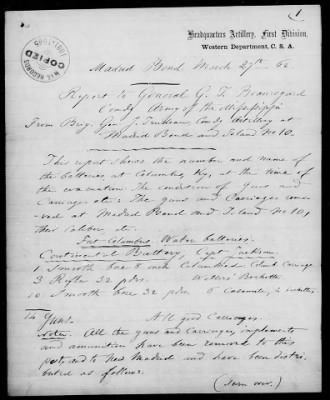 1
Headquarters Artillery, First Division,
Western Department, C. S. A.
WAR RECORDS
COPIED
1861-1865
Madrid Bend March 27th 62
Report to General G. T. Beauregard
Comdg Army of the Mississippi
From Brig. Gen. J. Trudeau Comdg Artillery at
Madrid Bend and Island No 10.
This report shows the number and name of
the batteries at Columbus Ky, at the time of
the evacuation. The condition of guns and
Carriages etc: The guns and Carriages
at Madrid Bend and Island No 10,
their Caliber etc.
Fort Columbus Water batteries.
Continental Battery, Capt
1 Smooth bore 8 inch Columbiad Carriage
3 Rifle 32 pdrs. Barbette
10 Smooth bore 32 pdrs 6 Casemate,
14 Guns. All good Carriages.
Note: All the guns and Carriages, implements
and ammunition have been removed to this
post, and to New Madrid and have been distri-
buted as follows.
(Turn over.)